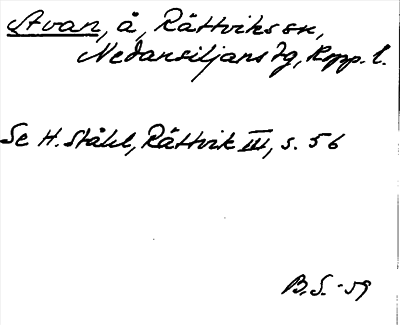 Avan, å, Rättviks sn,
Nedansiljans tg, Kopp. l.
Se H. Ståhl, Rättvik III, s. 56
B.S. -59